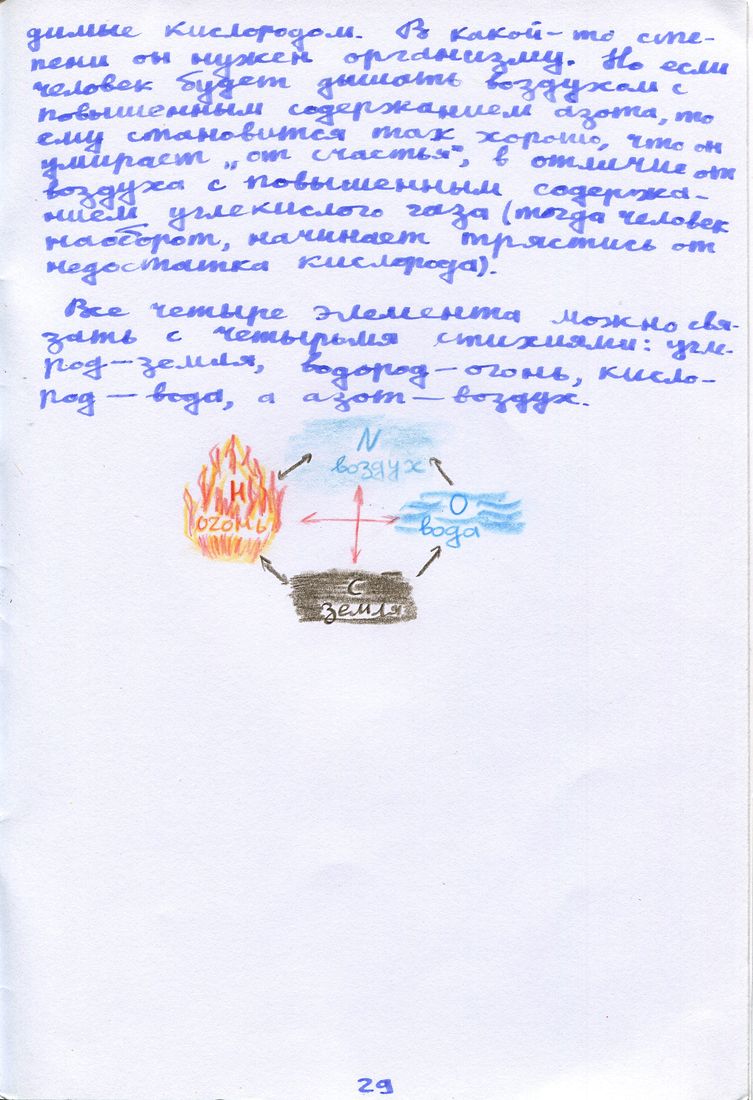 димые кислородом. В какой-то сте-
пени он нужен организму. Но если
человек будет дышать воздухом с
повышенным содержанием азота, то
ему становится так хорошо, что он
умирает „от счастья", в отличие от
воздуха с повышенным содержа-
нием углекислого газа (тогда человек
наоборот, начинает трястись от
недостатка кислорода).
Все четыре элемента можно свя-
зать с четырьмя стихиями: угле-
род—земля, водород—огонь, кисло-
род—вода, а азот—воздух.
N
воздух
H
огонь
O
вода
C
земля
29